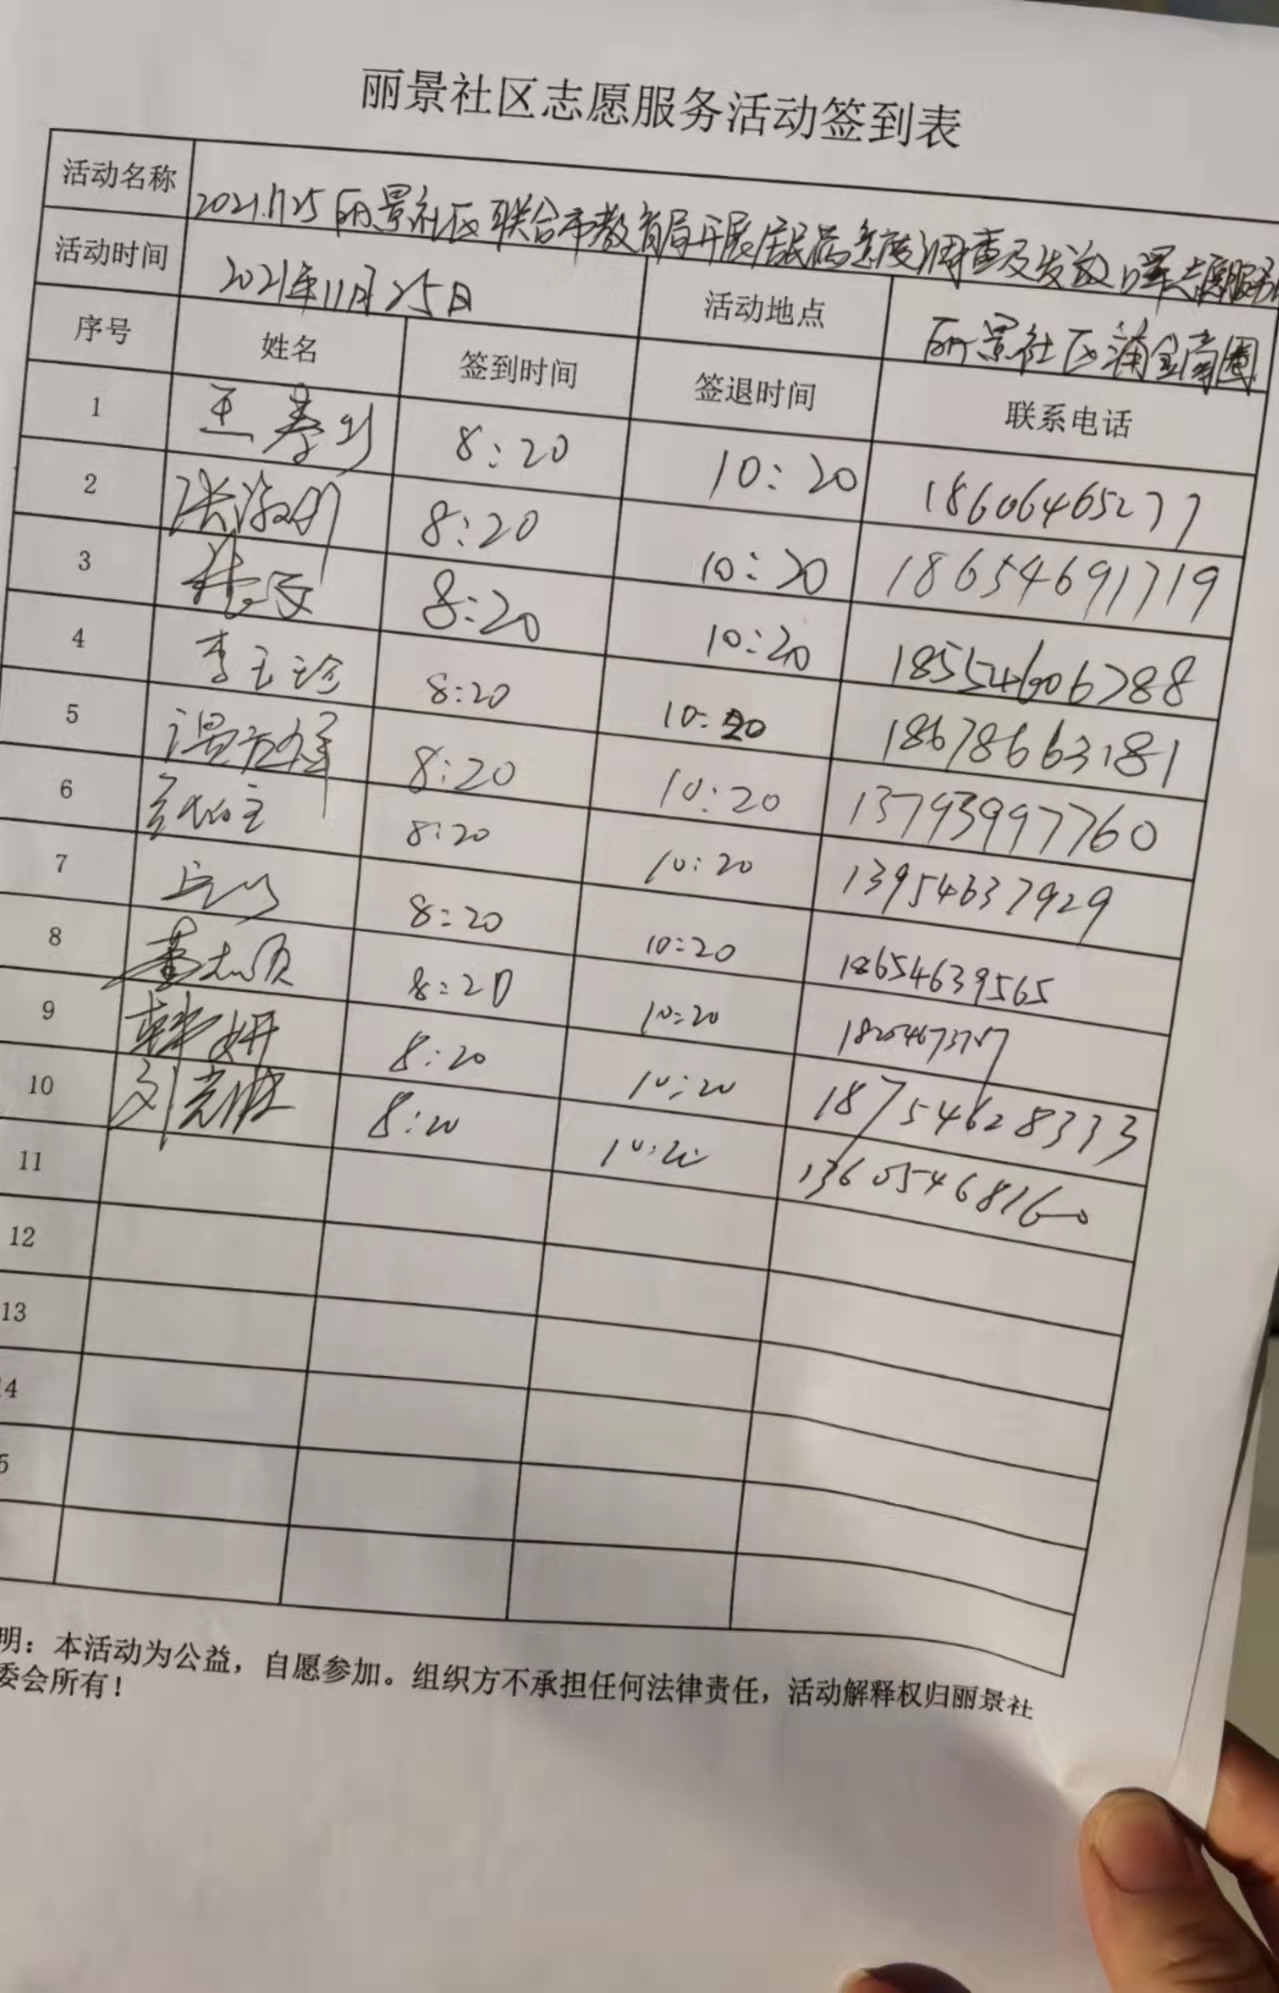 丽景社区志愿服务活动签到表
活动名称 2021.11.25丽景社区联合市教育局开展居民满意度调查及发放口罩志愿服务
活动时间 2021年11月25日 活动地点 丽景社区浦金商圈
序号 姓名 签到时间 签退时间 联系电话
1 8:20 10:20 18606465277
2 8:20 10:20 18654691719
3 8:20 10:20 18554606788
4 李玉珍 8:20 10:20 18678663181
5 8:20 10:20 13793997760
6 8:20 10:20 13954637929
7 8:20 10:20 18654639565
8 董志贞 8:20 10:20
9 韩妍 8:20 10:20 18754628333
10 刘光胜 8:20 10:20 13605468160
11
12
13
14
5
明：本活动为公益，自愿参加。组织方不承担任何法律责任，活动解释权归丽景社
委会所有！